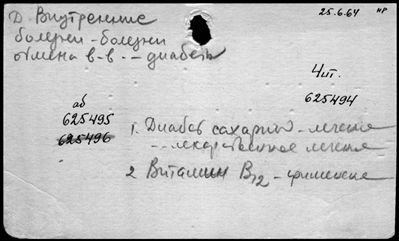 Д. Внутренние 25.6.64 нр
болезни - болезни
обмена в-в -- диабет
Чит.
625494
аб
625495
625496
1. Диабет сахарный - лечение
-- лекарственное лечение
2 Витамин В12 -